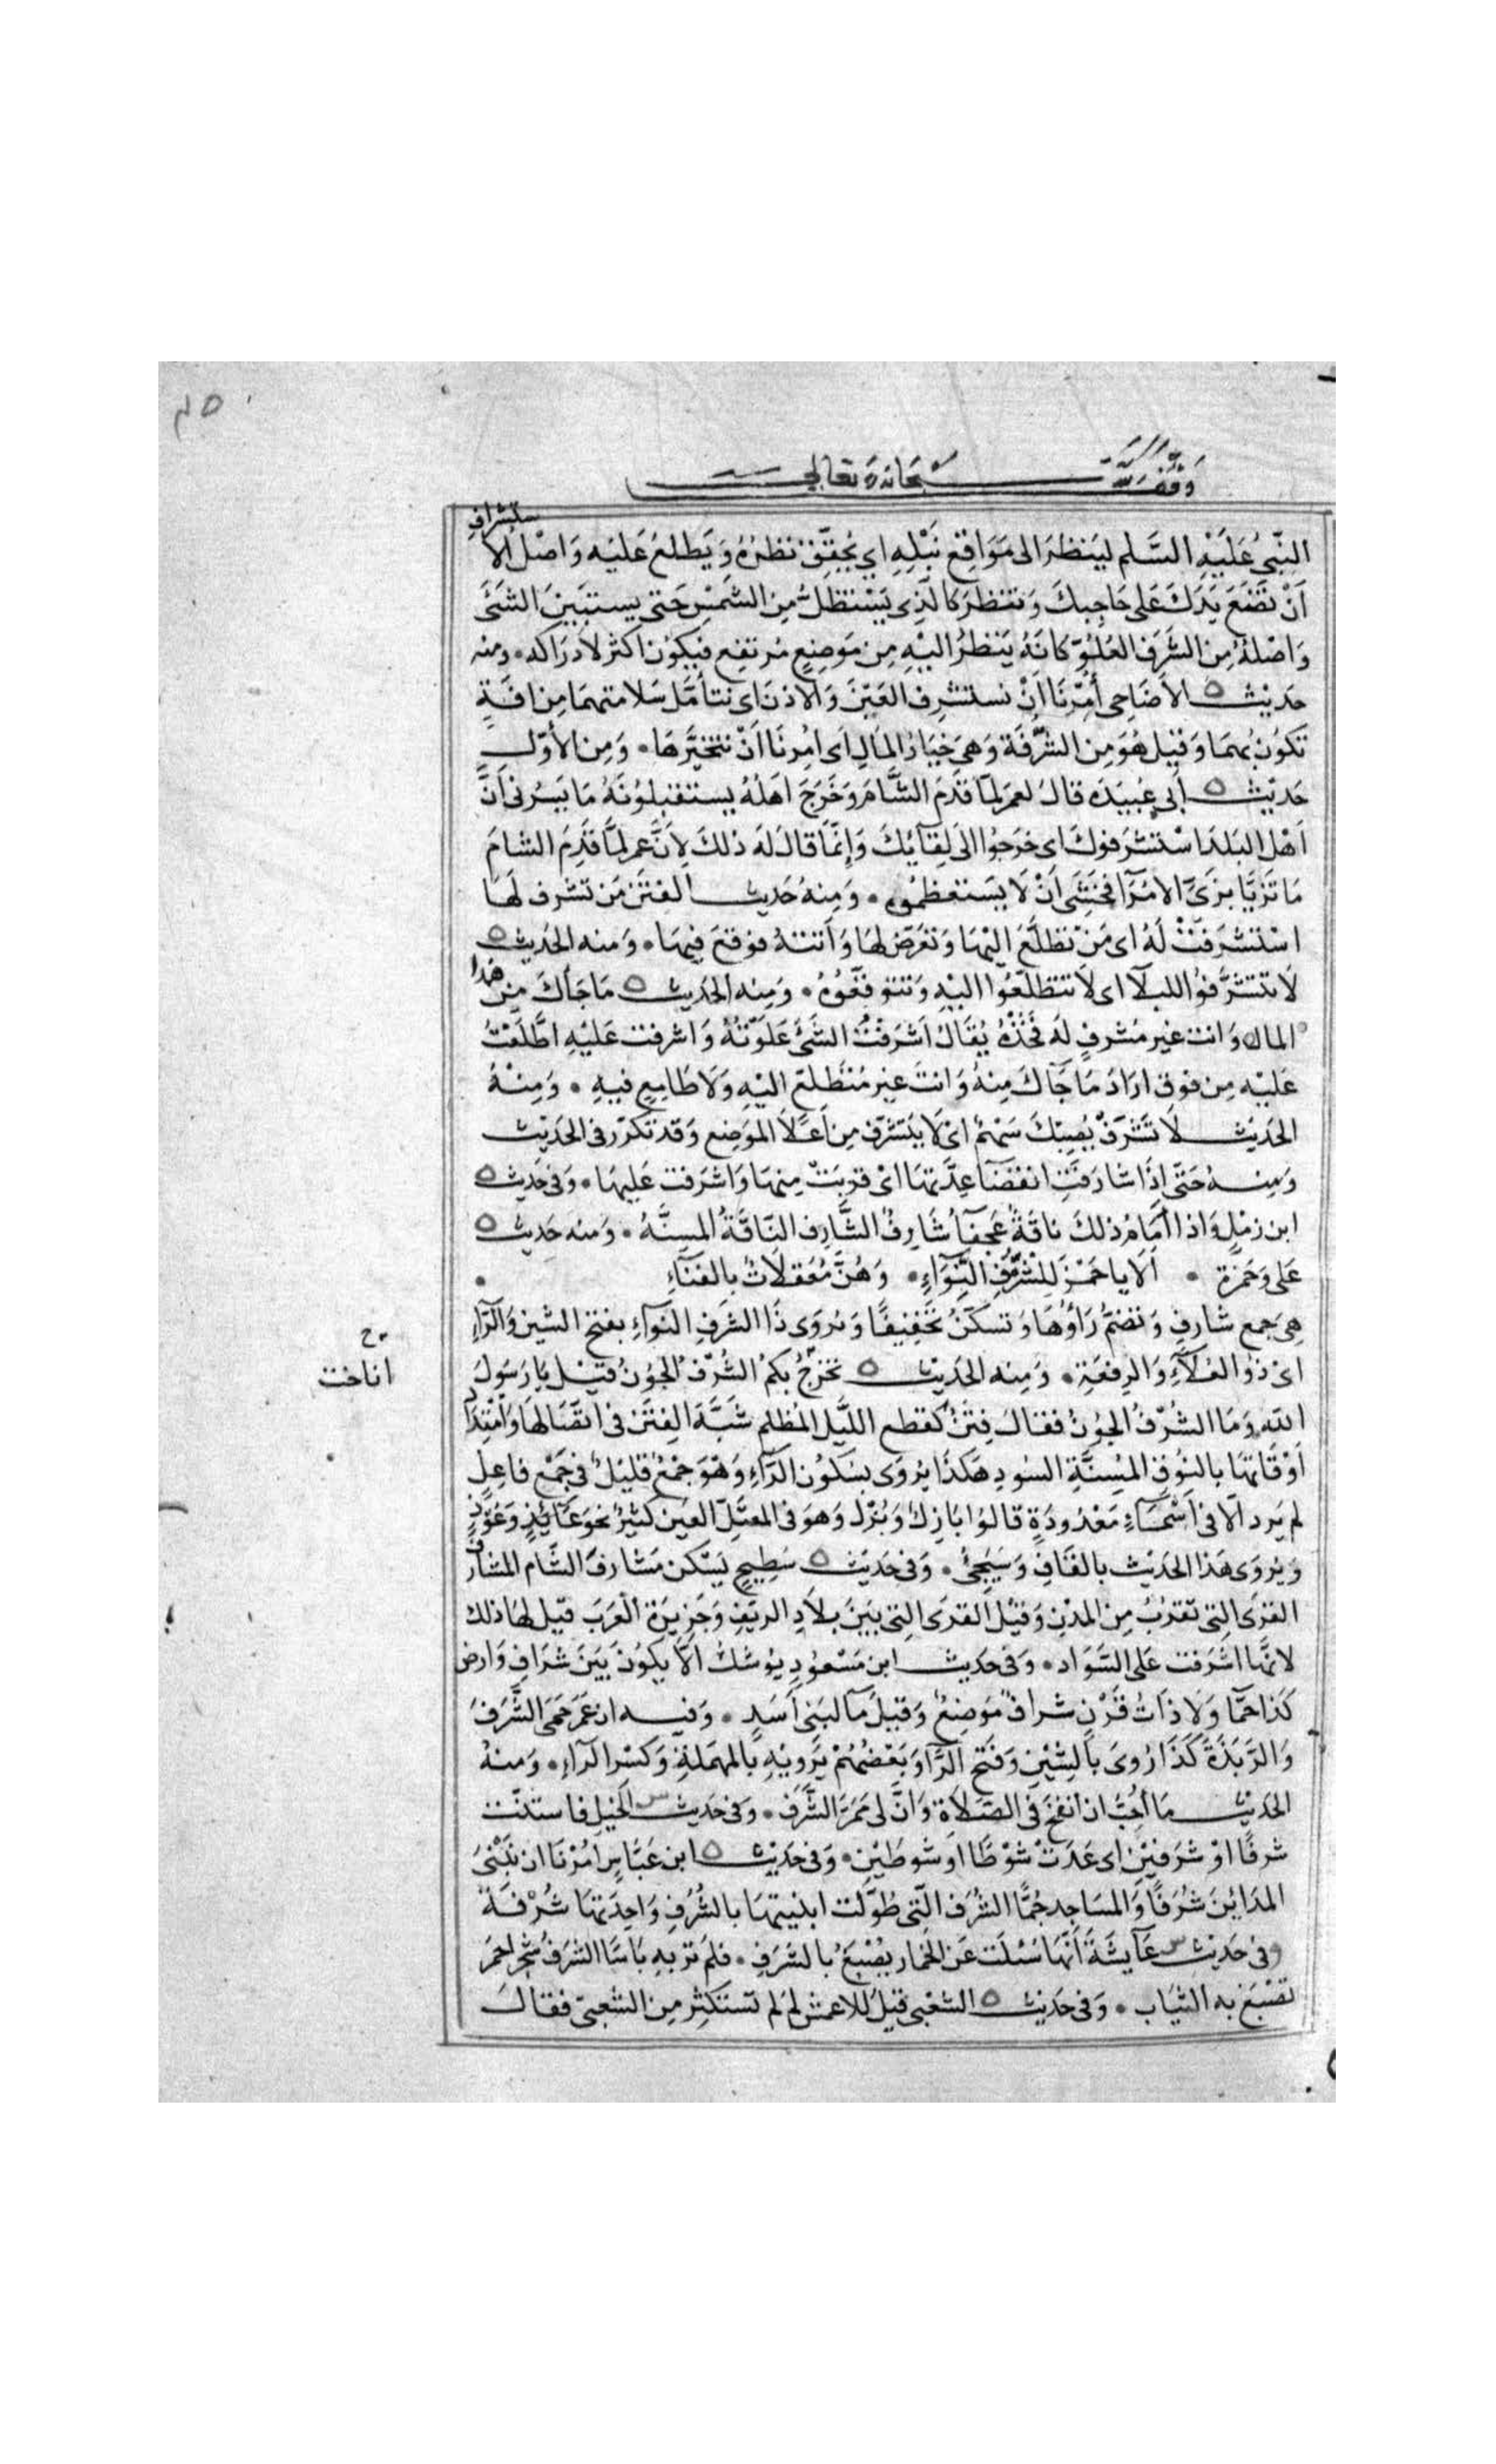 وقف لله سبحانه وتعالى
النّبيُ عَلَيْهِ السَّلم لينظرَ الى مَوَاقِع نَبْلِهِ اي يُحقِّق نظرُهُ وَيَطلعُ عَليْه وَاصْل الاستشراف
اَنْ تضَعَ يَدَكَ عَلى حَاجِبكَ وَتنظرَ كالّذي يَسْتظلُّ مِنَ الشمْسِ حَتى يستبينَ الشئَ
وَاصْلهُ مِن الشَّرَف العُلُوّ كانّهُ يَنظرُ اليْهِ مِن مَوضِعٍ مُرتفِع فيكوُن اكثر لادرَاكه ومنه
حَديْث الاَضَاحِي أُمِرْنَا اَنْ نستشرِف العَيْنَ وَالاذنَ اى نتأمَّل سَلامتهمَا مِن افَةٍ
تكوُن بهمَا وَقيْل هُوَ مِن الشُّرْفَة وَهيَ خِيَارُ المَالِ اَى اُمِرنَا اَنْ نتخيَّرهَا وَمِن الأوّل
حَديْث أبى عبيدَه قالَ لعمرَ لمّا قَدمَ الشَّامَ وَخَرَجَ اَهلهُ يستقبلوُنهُ مَا يَسُرنى اَنَّ
اَهْل البَلَد اسْتشرَفوكَ اى خرَجوُا الىَ لِقائِكَ وَاِنّمَا قالَ لَه ذلكَ لِأنَّ عمر لمَّا قَدِمَ الشامَ
مَا تَزَيَّا بزىِّ الامُرَآ فخشىَ اَنْ لَا يَستعظمُوه وَمِنهُ حَديث الفتَن مَن تشرف لهَا
اسْتشرَفتْ لَهُ اى مَنْ تطلَّعَ اليْهَا وَتعَرّضَ لهَا وَاَتتهُ فوَقعَ فيهَا وَمنه الحَديث
لاَ تَتَشَرَّفوُا للبلآ اى لاَ تتطلّعُوا اليْهِ وَتتوقعُوهُ وَمِنه الحَديث مَا جَآكَ مِن هَذا
المالِ وَانت غير مُشرفٍ لَه فخُذْهُ يُقَالُ اَشرَفْتُ الشئَ عَلَوْتهُ وَاشرفت عَليْهِ اطَّلَعْتُ
عَليْه مِن فوق ارَادَ مَا جَآكَ مِنهُ وَانتَ غير مُتطلعٍ اليْه وَلاَ طَامِعٍ فيهِ وَمِنْهُ
الحَديث لاَ تَشرّفْ يُصِبْكَ سَهْمٌ اى لَا يتشرّف مِن اَعْلاَ المَوَضِع وَقد تكرّر فى الحَديْث
وَمِنه حَتّى اِذَا شارَفَتِ انقضآ عِدَّتهَا اىْ قربَتْ مِنهَا وَاشرَفت عَليهَا وَفى حَديث
ابن زمْلٍ وَاذا اَمَامَ ذلكَ ناقَةٌ عَجفآ شَارِفٌ الشَّارِف النّاقةُ المسِنَّهُ وَمنه حَديث
عَلى وَحَمزة اَلَا يا حَمْزَ للِشُّرُفِ النِّوَاءِ وَهُنَّ مُعَقلاَتٌ بالفنآءِ
هِيَ جمع شارفٍ وَتضمُّ رَاؤُهَا وَتسكّنُ تخفيفًا وَيروَى ذَا الشرَفِ النوآءِ بفتح الشين وَالرّآءِ
اى ذوُ العُلآءِ وَالرفعَةِ وَمنه الحَديْث تخرُجُ بكمُ الشُّرْف الجوُن قيْل يَا رَسُولَ
ح
اناخت
اللهِ وَمَا الشُّرْفُ الجوُنُ فقالَ فِتَنٌ كقطع اللّيْل المُظلم شَبَّهَ الفتَن فى اتّصَالهَا وَامْتِدَادِ
اَوْقَاتهَا بالنوُقِ المُسِنَّةِ السُودِ هكَذَا يروَى بسَكوُن الرّآءِ وَهْوَ جَمْعٌ قليْلٌ فى جَمْع فاعلٍ
لم يَرد الاّ فى اَسْمَاءٍ مَعْدُودَةٍ قالوُا بَازِل وَبُزْل وَهوَ فى المعتَلّ العين كثيرٌ نحو عَائِذٍ وَعُوذٍ
وَيُروَى هَذا الحَديْث بالقَافِ وَسَيَجئُ وَفى حَديْث سَطيحٍ يَسْكن مَشارفَ الشّام المشارف
القرَى التى تقربُ مِن المدْنِ وَقيْل القرَى التى بَينَ بلاَدِ الريْفِ وَجَزيرَة العَرَب قيْل لهَا ذلك
لانّهَا اشرَفت عَلى السَّوَاد وَفى حَديث ابن مَسْعوُدٍ يُوشكُ الاّ يكوُنَ بَينَ شرَافِ وَارض
كَذا جَمَّا وَلاَ ذاتُ قَرْنٍ شرافٌ مَوضِعٌ وَقيلَ مآ لبَنى اَسَدٍ وَفيه ان عُمَرَ حَمَى الشَّرَفَ
وَالرَّبَذَةَ كَذَا رُوىَ بالشيْن وَفَتح الرَّا وَبَعْضُهُمْ يَرويْهِ بالمهمَلةِ وَكسْر الرآءِ وَمنهُ
الحَديْث مَا اُحِبُّ ان انفخَ فى الصَلاَة وَانَّ لى مَمَرَّ الشّرَف وَفى حَديث الخَيلِ فاستنّت
شرفًا اوْ شرَفيْن اى عَدَتْ شوْطًا اَو شوطَيْنِ وَفى حَديْث ابن عَبّاسٍ اُمِرْنَا ان نَبْنىَ
المدَايْنَ شُرَفًا وَالمسَاجِد جُمًّا الشُرَف الّتى طُوّلَت ابنيَتهَا بالشُرَفِ وَاحِدَتهَا شُرْفَةٌ
وفى حَديث عَآيشَةَ اَنّهَا سُئلَت عَن الخمَار يُصْبَغُ بالشرَفِ فلم تَر بهِ بَاسًا الشرَفُ شجر احمَر
تصْبَغ به الثيَاب وَفى حَديث الشعْبى قيْل للاعمش لم لَم تَستكثر مِن الشعبىّ فقالَ